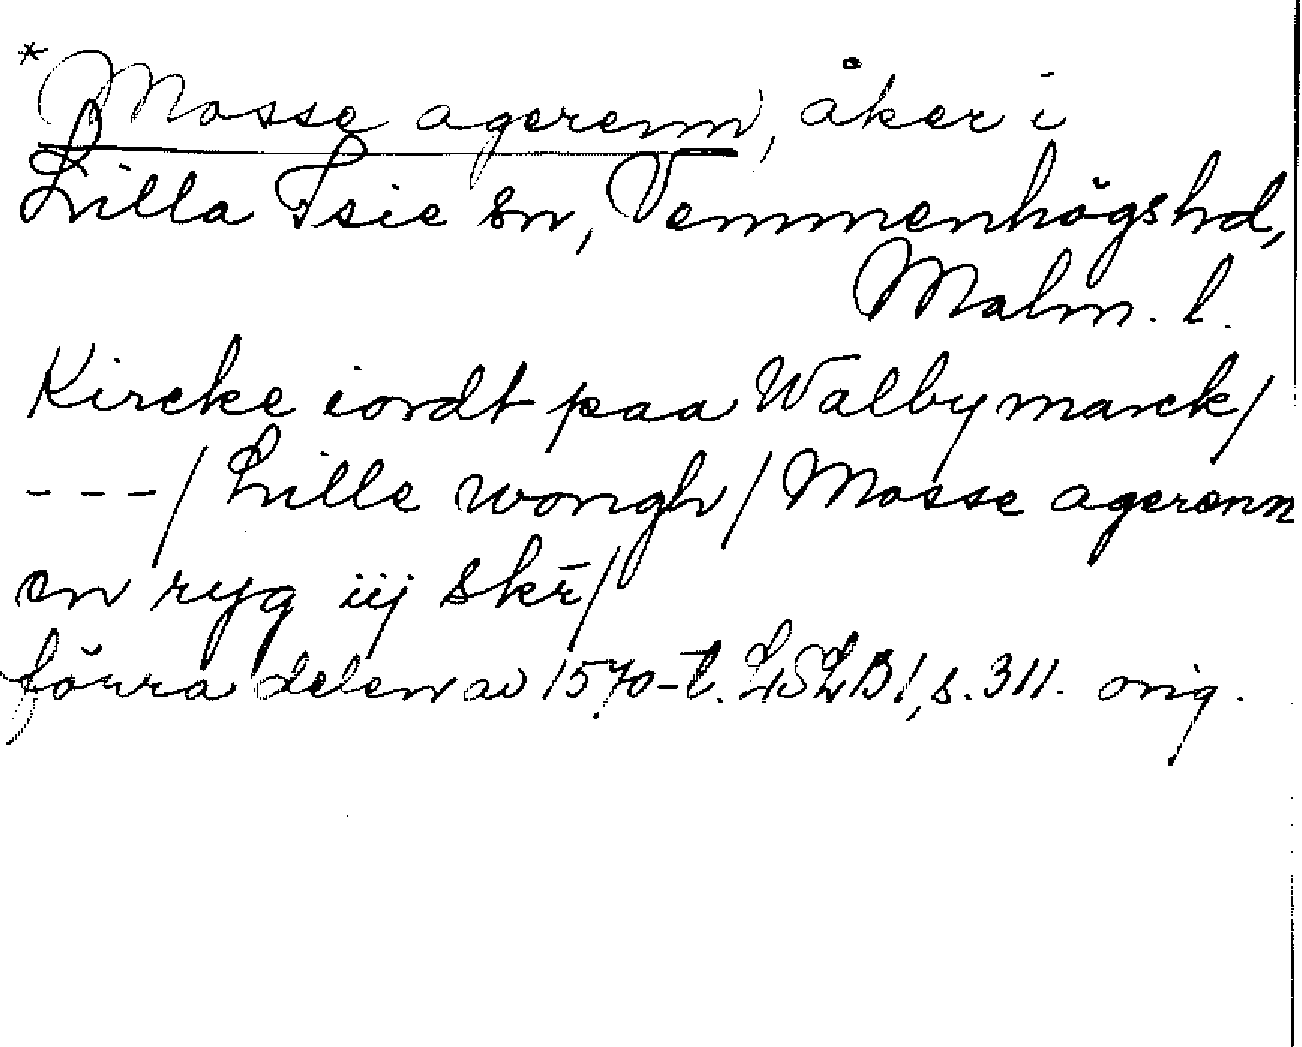 *Mosse agerenn, åker i
Lilla Isie sn, Vemmenhögs hd,
Malm. l.
Kircke iordt paa Walby marck/
---/ Lille wongh/ Mosse agerenn
en ryg iij skē/
förra delen av 1570-t. LSLB1, s. 311. orig.